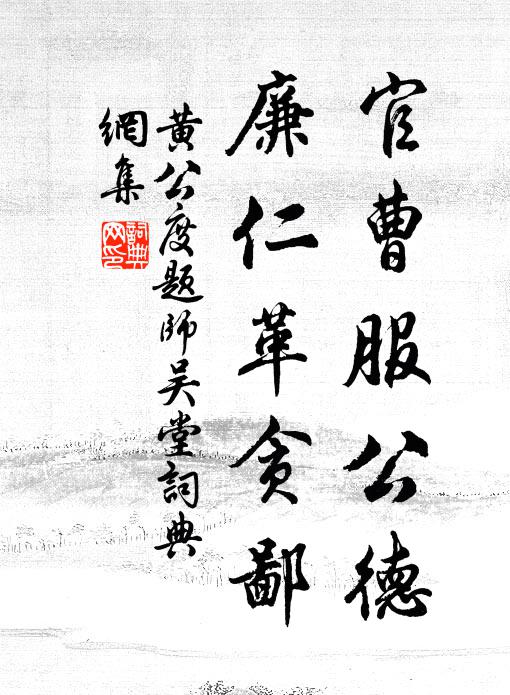 官曹服公德
廉仁革贪鄙
黄公度题师吴堂詞典
網集
詞典
网印